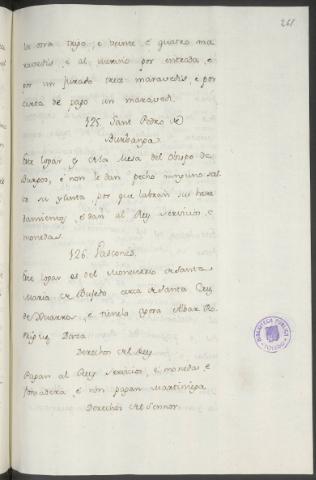 261
la otra trepo, e veinte e quatro ma
ravedis e al merino por entrada, e
por un jurado trece maravedis, e por
carta de pago un maravedi.
125. Sant Pedro de
Buruanga
Este logar es de la Mesa del Obispo de
Burgos, e non le dan pecho ninguno sal
vo su yunta, por que labran sus here
damientos, e dan al Rey servicios e
monedas
126. Pascones.
Este logar es del Monesterio de Santa
Maria de Bujedo cerca de Santa Cruz
de Juarros, e tienela agora Albar Ro
driguez Daza
Derechos del Rey
Pagan al Rey Servicios, e monedas e
fonsadera, e non pagan martiniega
Derechos del Sennor
BIBLIOTECA PUBLICA
TOLEDO